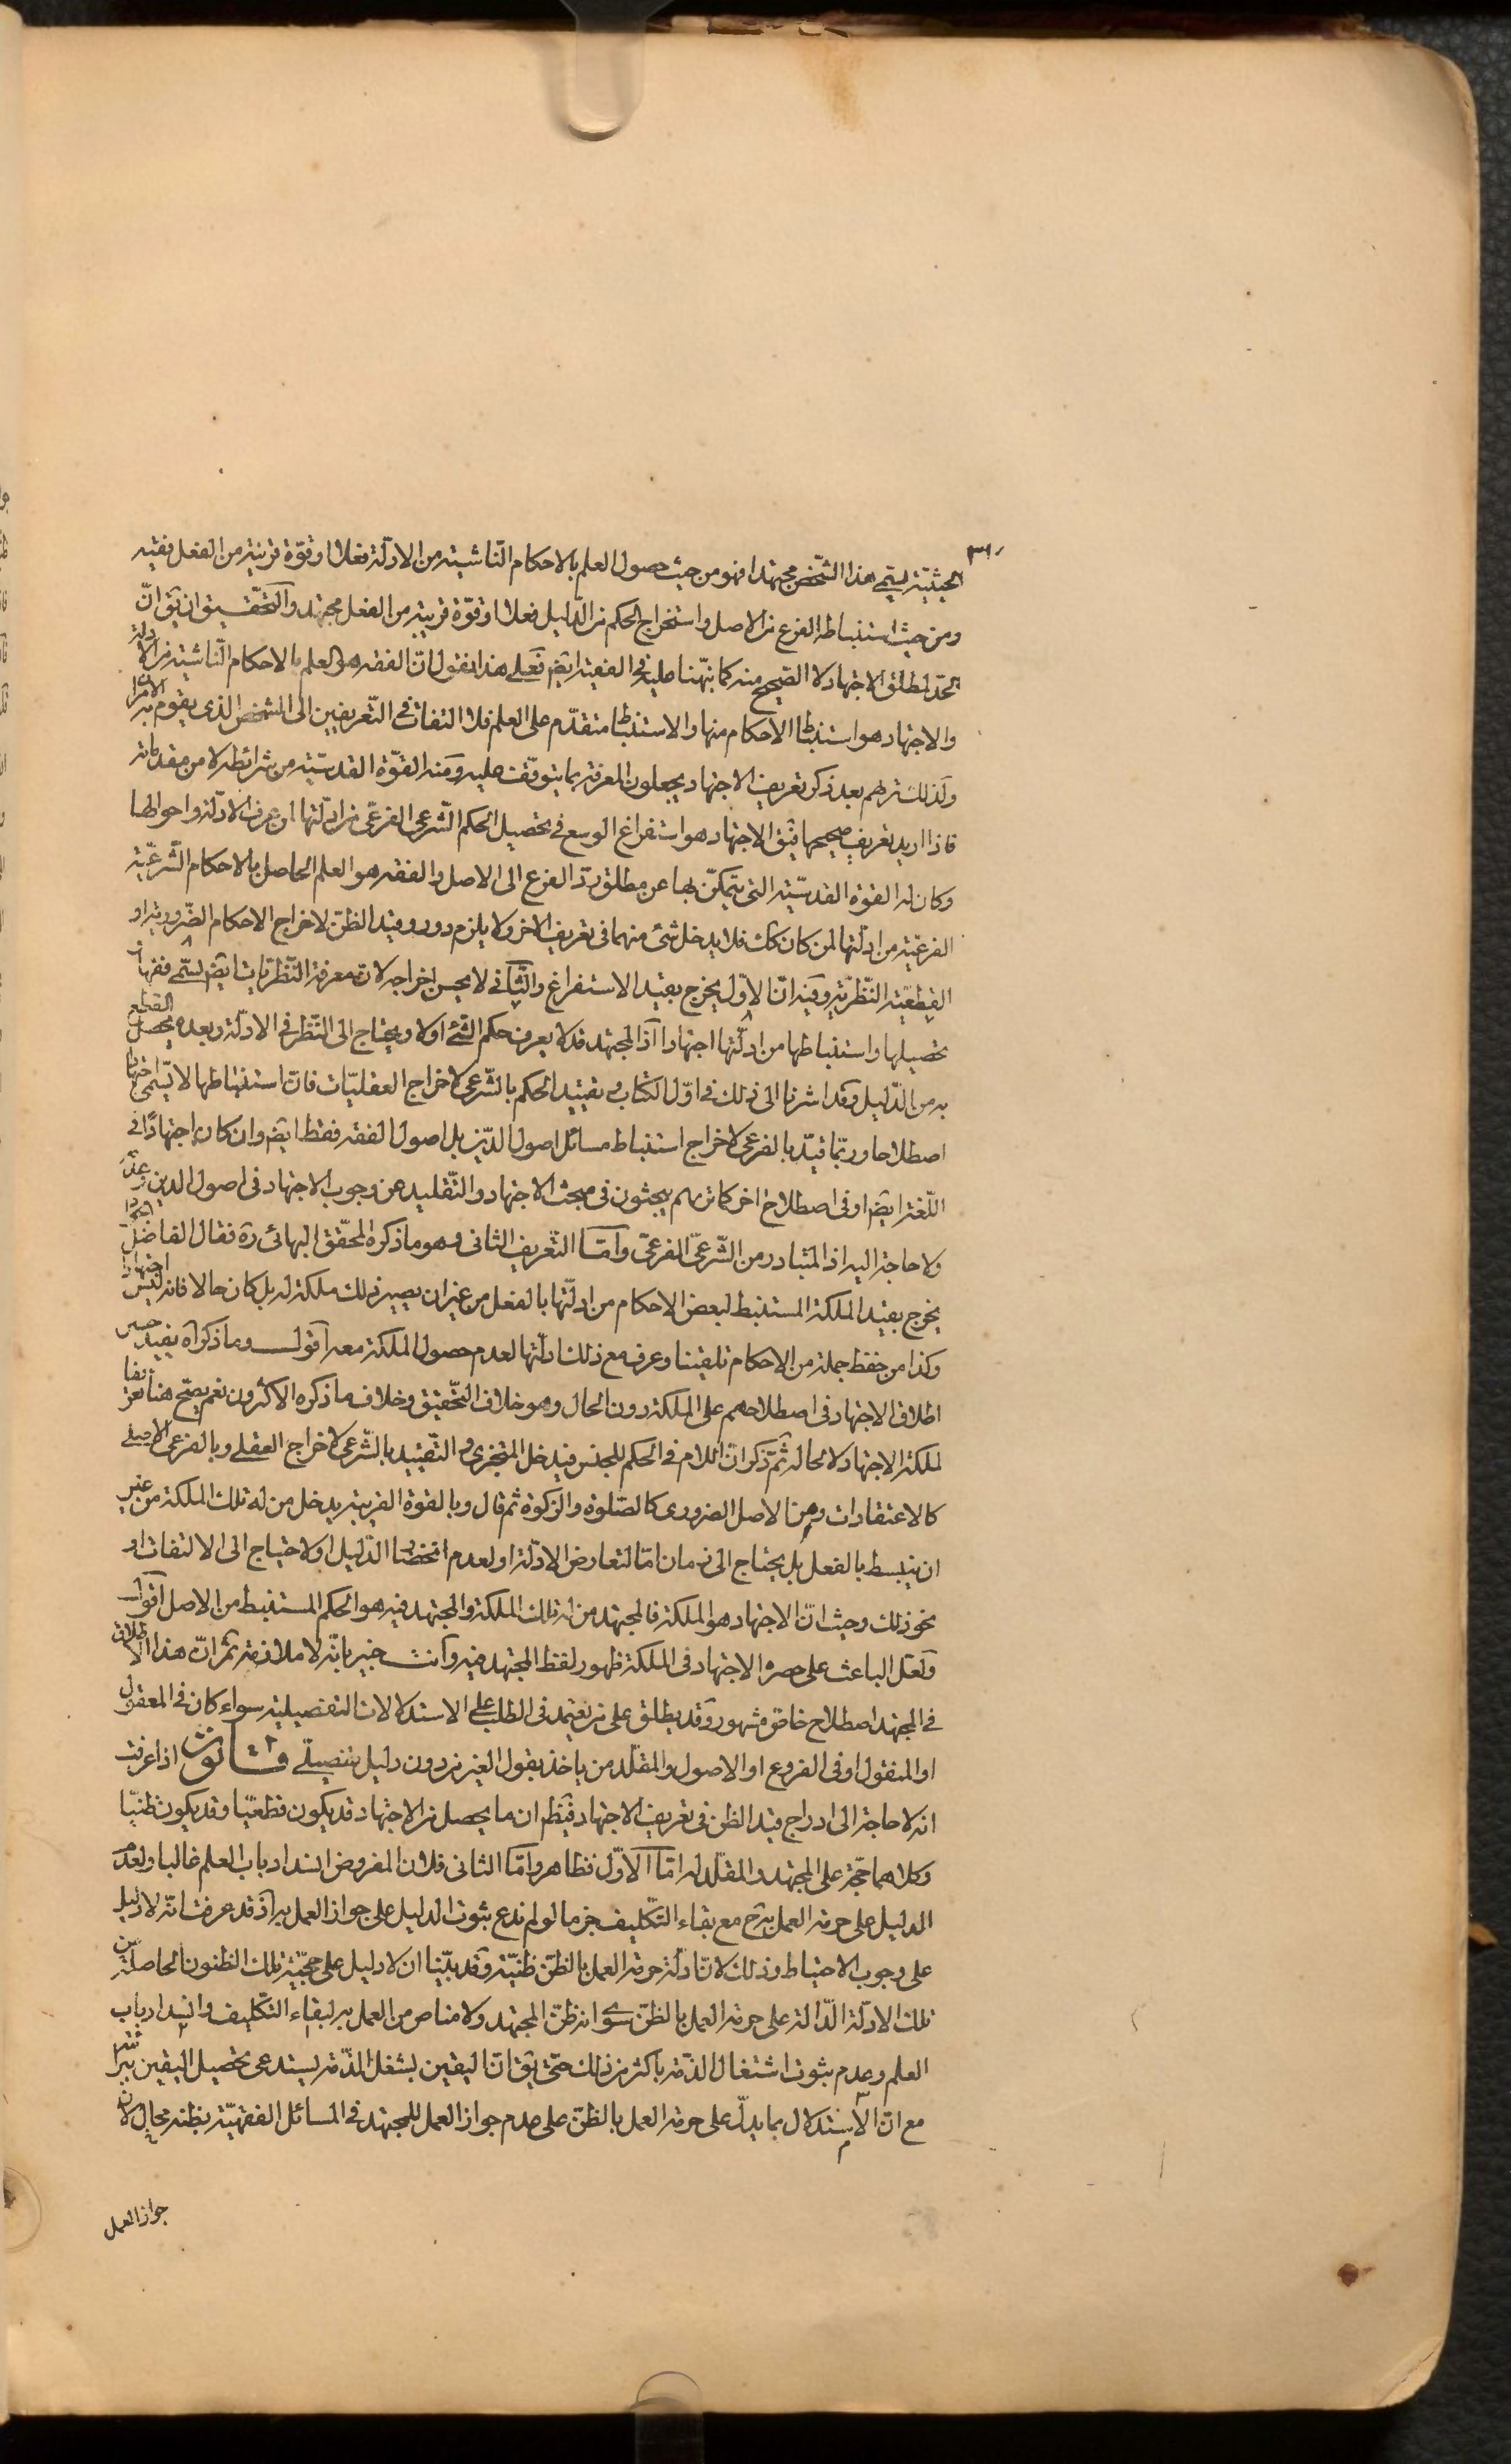 ٣٦٠
الحيثيّة يسمّى هذا الشّخص مجتهدا فهو من حيث حصول العلم بالاحكام النّاشية من الادلّة فعلا او قوّة قريبة من الفعل فقيه
ومن حيث استنباطه الفرع من الاصل واستخراج الحكم من الدّليل فعلا او قوّة قريبة من الفعل مجتهد والتّحقيق ان يق انّ
الحدّ لمطلق الاجتهاد لا الصّحيح منه كما نبّهنا عليه في الفقيه ايضا فعلى هذا نقول انّ الفقه هو العلم بالاحكام النّاشية من الادلة
والاجتهاد هو استنباط الاحكام منها والاستنباط متقدّم على العلم فلا التفات في التّعريفين الى الشخص الذى يقوم به الامران
ولذلك تريهم بعد ذكر تعريف الاجتهاد يجعلون المعرفة بما يتوقّف عليه ومنه القوّة القدسيّة من شرائطه لا من مقدماته
فاذا اريد تعريف صحيحها فيق الاجتهاد هو استفراغ الوسع في تحصيل الحكم الشّرعى الفرعىّ من ادلّتها لمن عرف الادلّة واحوالها
وكان له القوة القدسيّة التى يتمكّن بها عن مطلق ردّ الفرع الى الاصل والفقه هو العلم الحاصل بالاحكام الشّرعيّة
الفرعيّة من ادلّتها لمن كان كك فلا يدخل شئ منهما في تعريف الاخر ولا يلزم دور وقيد الظنّ لاخراج الاحكام الضّرورية او
القطعيّة النّظريّة وفيه انّ الاوّل يخرج بقيد الاستفراغ والثّانى لا يحسن اخراجه لانّ معرفة النّظريات ايضا يسمّى فقها و
تحصيلها واستنباطها من ادلّتها اجتهادا اذ المجتهد قد لا يعرف حكم الشئ اوّلا ويحتاج الى النّظر في الادلّة وبعده يحصل القطع
به من الدّليل وقد اشرنا الى ذلك في اوّل الكتاب وتقييد الحكم بالشّرعى لاخراج العقليّات فانّ استنباطها لا يسمّى اجتهادا
اصطلاحا وربّما قيّد بالفرعى لاخراج استنباط مسائل اصول الدّين بل اصول الفقه فقط ايضا وان كان اجتهادًا في
اللّغة ايضا او في اصطلاح اخر كما تريهم يبحثون في مبحث الاجتهاد والتّقليد عن وجوب الاجتهاد في اصول الدين وعدّ
ولا حاجة اليه اذ المتبادر من الشّرعىّ الفرعىّ وامّا التّعريف الثانى وهو ما ذكره المحقّق البهائى ره فقال الفاضل الجواد
يخرج بقيد الملكة المستنبط لبعض الاحكام من ادلّتها بالفعل من غير ان يصير ذلك ملكة له بل كان حالا فانه ليس اجتهادا
وكذا من حفظ جملة من الاحكام تلقينا وعرف مع ذلك ادلّتها لعدم حصول الملكة معه اقول وما ذكراه يفيد حصر
اطلاق الاجتهاد في اصطلاحهم على الملكة دون الحال وهو خلاف التّحقيق وخلاف ما ذكره الاكثرون نعم يصحّ هنا تعريفا
لملكة الاجتهاد لا محالة ثمّ ذكر انّ اللام في الحكم للجنس فيدخل المتجزى والتّقييد بالشّرعى لاخراج العقلى وبالفرعى الاصلى
كالاعتقادات ومن الاصل الضرورى كالصّلوة والزكوة ثم قال وبالقوة القريبة يدخل من له تلك الملكة من غير
ان يتبسط بالفعل بل يحتاج الى زمان امّا لتعارض الادلّة او لعدم استحضار الدّليل او لاحتياج الى الالتفات او
نحو ذلك وحيث انّ الاجتهاد هو الملكة فالمجتهد من له تلك الملكة والمجتهد فيه هو الحكم المستنبط من الاصل اقول
ولعلّ الباعث على حصره الاجتهاد في الملكة ظهور لفظ المجتهد فيه وانت خبير بانّه لا ملازمة ثمّ انّ هذا الاطلاق
في المجتهد اصطلاح خاصّ مشهور وقد يطلق على من يعتمد في الطلب على الاستدلالات التفصيلية سواء كان في المعقول
او المنقول او في الفروع او الاصول والمقلّد من ياخذ بقول الغير من دون دليل تفصيلىّ قانون اذا عرفت
انه لا حاجة الى ادراج قيد الظن في تعريف الاجتهاد فيظهر ان ما يحصل من الاجتهاد قد يكون قطعيّا وقد يكون ظنيّا
وكلاهما حجّة على المجتهد والمقلّد له امّا الاوّل فظاهر وامّا الثانى فلان المفروض انسداد باب العلم غالبا ولعدم
الدليل على حرمة العمل به ح مع بقاء التّكليف جزما لو لم ندع ثبوت الدليل على جواز العمل به اذ قد عرفت انّه لا دليل
على وجوب الاحتياط وذلك لانّ ادلّة حرمة العمل بالظنّ ظنيّة وقد بيّنا ان لا دليل على حجيّة تلك الظنون الحاصلة من
تلك الادلّة الدّالة على حرمة العمل بالظنّ سوى انه ظنّ المجتهد ولا مناص من العمل به لبقاء التّكليف وانسداد باب
العلم وعدم ثبوت اشتغال الذّمة باكثر من ذلك حتّى يق انّ اليقين بشغل الذّمة يستدعى تحصيل اليقين ببراءته
مع انّ الاستدلال بما يدلّ على حرمة العمل بالظنّ على عدم جواز العمل للمجتهد في المسائل الفقهيّة بظنه محال لان
جواز العمل